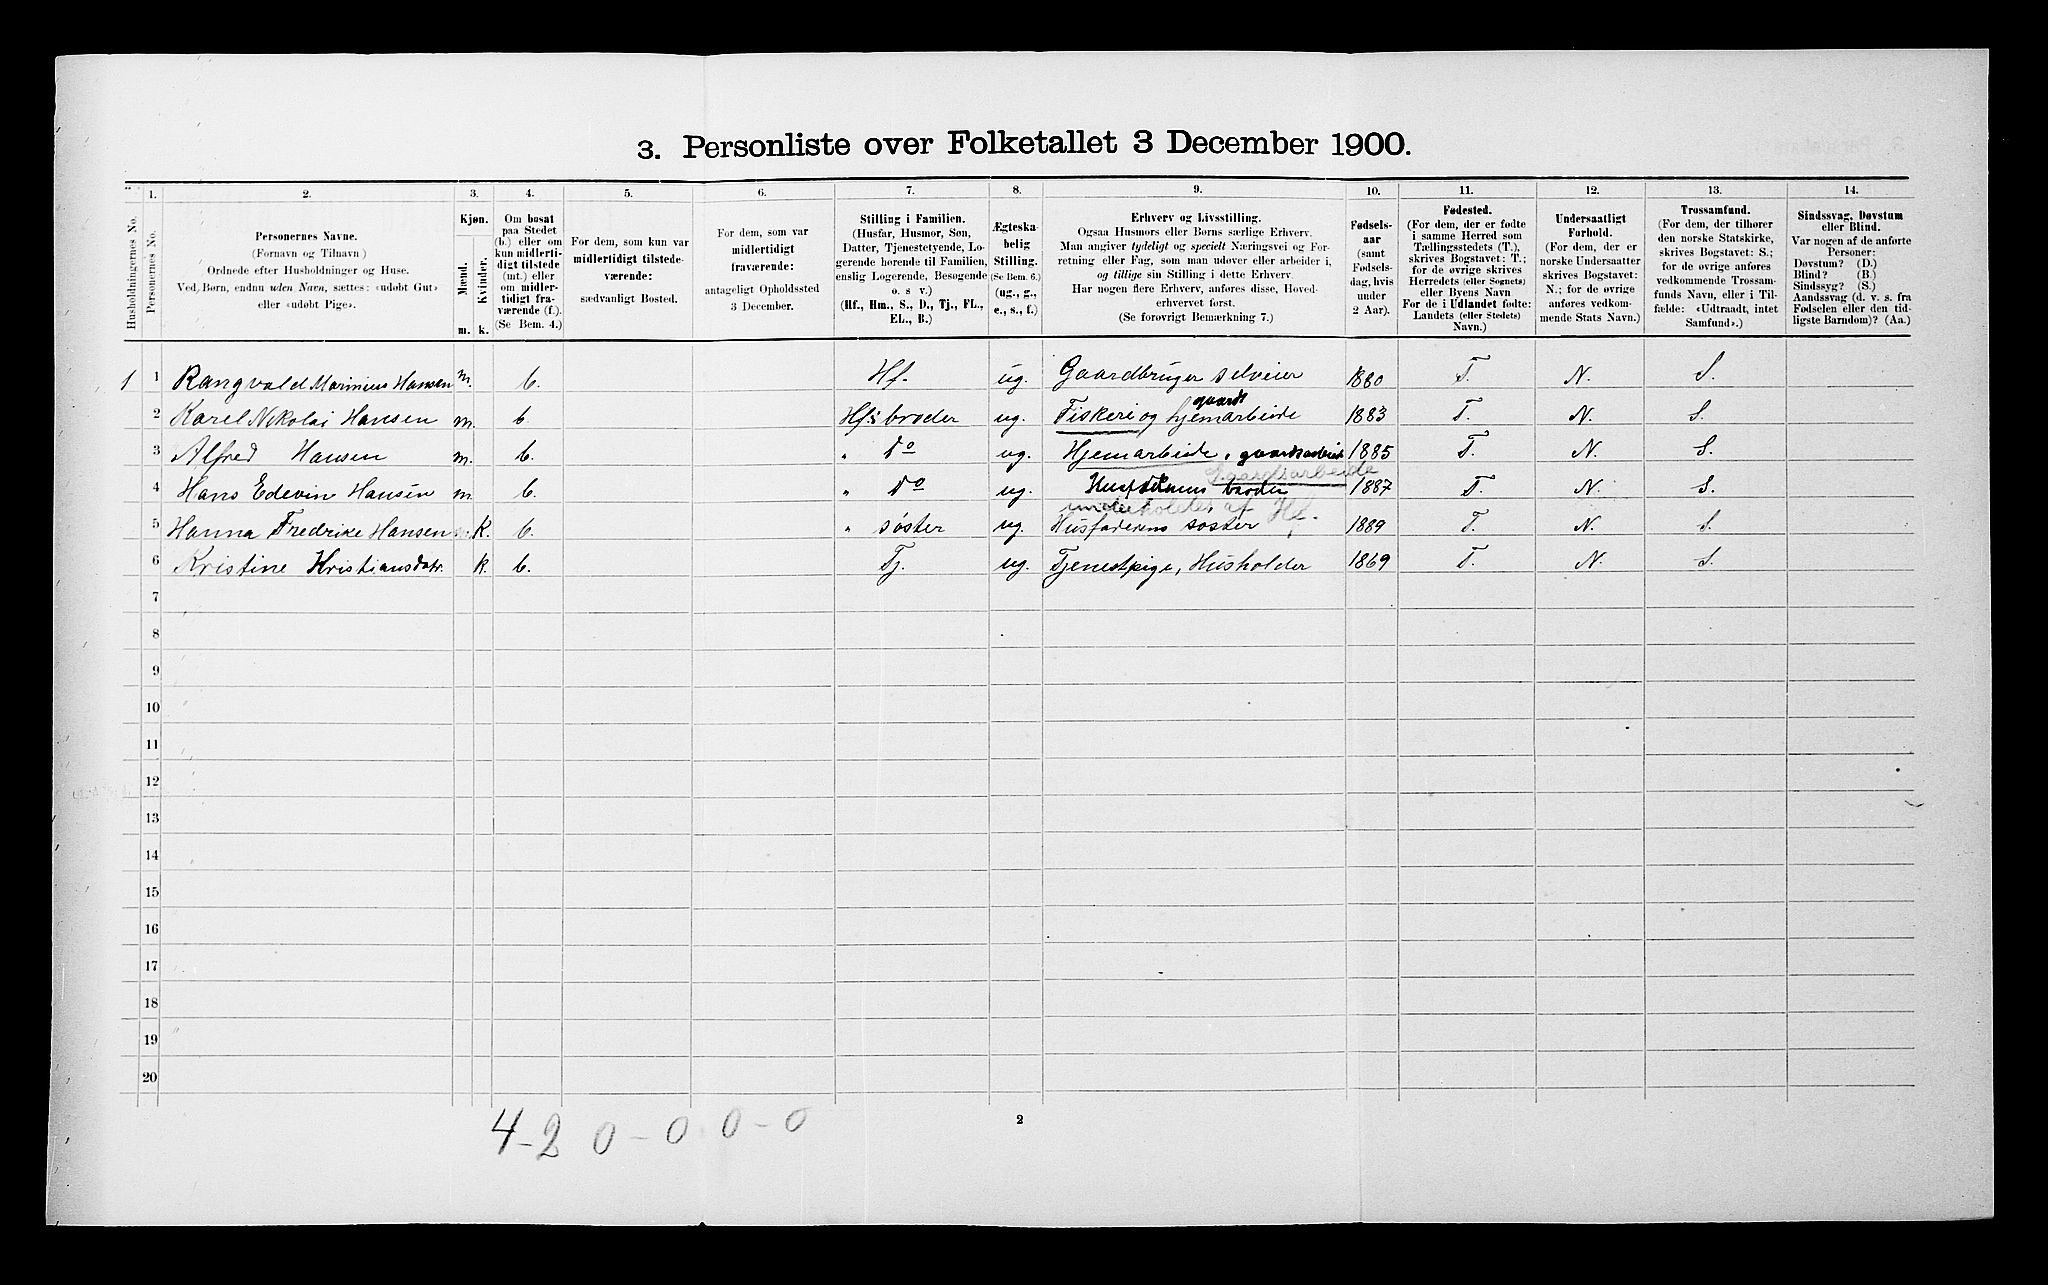 3. Personliste over Folketallet 3 December 1900.
1. 2. 3. 4. 5. 6. 7. 8. 9. 10. 11. 12. 13. 14.
Husholdningernes No.
Personernes No.
Personernes Navne.
(Fornavn og Tilnavn)
Ordnede efter Husholdninger og Huse.
Ved Børn, endnu uden Navn, sættes: «udøbt Gut»
eller «udøbt Pige».
Kjøn.
Mænd.
Kvinder.
m. k.
Om bosat
paa Stedet
(b.) eller om
kun midlerti-
digt tilstede
(mt.) eller
om midler-
tidigt fra-
værende (f.).
(Se Bem. 4.)
For dem, som kun var
midlertidigt tilstede-
værende:
sædvanligt Bosted.
For dem, som var
midlertidigt
fraværende:
antageligt Opholdssted
3 December.
Stilling i Familien.
(Husfar, Husmor, Søn,
Datter, Tjenestetyende, Lo-
gerende hørende til Familien,
enslig Logerende, Besøgende
o. s v.)
(Hf., Hm., S., D., Tj., FL.,
EL., B.)
Ægteska-
belig
Stilling.
(Se Bem. 6.)
(ug., g.,
e., s., f.)
Erhverv og Livsstilling.
Ogsaa Husmors eller Børns særlige Erhverv.
Man angiver tydeligt og specielt Næringsvei og For-
retning eller Fag, som man udøver eller arbeider i,
og tillige sin Stilling i dette Erhverv.
Har nogen flere Erhverv, anføres disse, Hoved-
erhvervet først.
(Se forøvrigt Bemærkning 7.)
Fødsels-
aar
(samt
Fødsels-
dag, hvis
under
2 Aar).
Fødested.
(For dem, der er fødte
i samme Herred som
Tællingsstedets (T.),
skrives Bogstavet: T.;
for de øvrige skrives
Herredets (eller Sognets)
eller Byens Navn
For de i Udlandet fødte:
Landets (eller Stedets)
Navn.)
Undersaatligt
Forhold.
(For dem, der er
norske Undersaatter
skrives Bogstavet:
N.; for de øvrige
anføres vedkom-
mende Stats Navn.)
Trossamfund.
(For dem, der tilhører
den norske Statskirke,
skrives Bogstavet: S.;
for de øvrige anføres
vedkommende Trossam-
funds Navn, eller i Til-
fælde: «Udtraadt, intet
Samfund».)
Sindssvag, Døvstum
eller Blind.
Var nogen af de anførte
Personer:
Døvstum? (D.)
Blind? (B.)
Sindssyg? (S.)
Aandssvag (d. v. s. fra
Fødselen eller den tid-
ligste Barndom)? (Aa.)
1 1 Rangvald Marinius Hansen m. b. Hf. ug. Gaardbruger selveier 1880 T. N. S.
2 Karel Nikolai Hansen m. b. Hf.s broder ug. Fiskeri og gaards hjemarbeide 1883 T. N. S.
3 Alfred Hansen m. b. " Do ug. Hjemarbeide, gaardsarbeide 1885 T. N. S.
Gaardsarbeide
4 Hans Edevin Hansen m. b. " Do ug. Husfaderens broder 1887 T. N. S.
underholdes af Hf.
5 Hanna Fredrike Hansen k. b. " søster ug. Husfaderens søster 1889 T. N. S.
6 Kristine Kristiansdatr. k. b. Tj. ug. Tjenestpige, Husholder 1869 T. N. S.
7
8
9
10
11
12
13
14
15
16
17
18
19
20
4-2 0-0 0-0
2